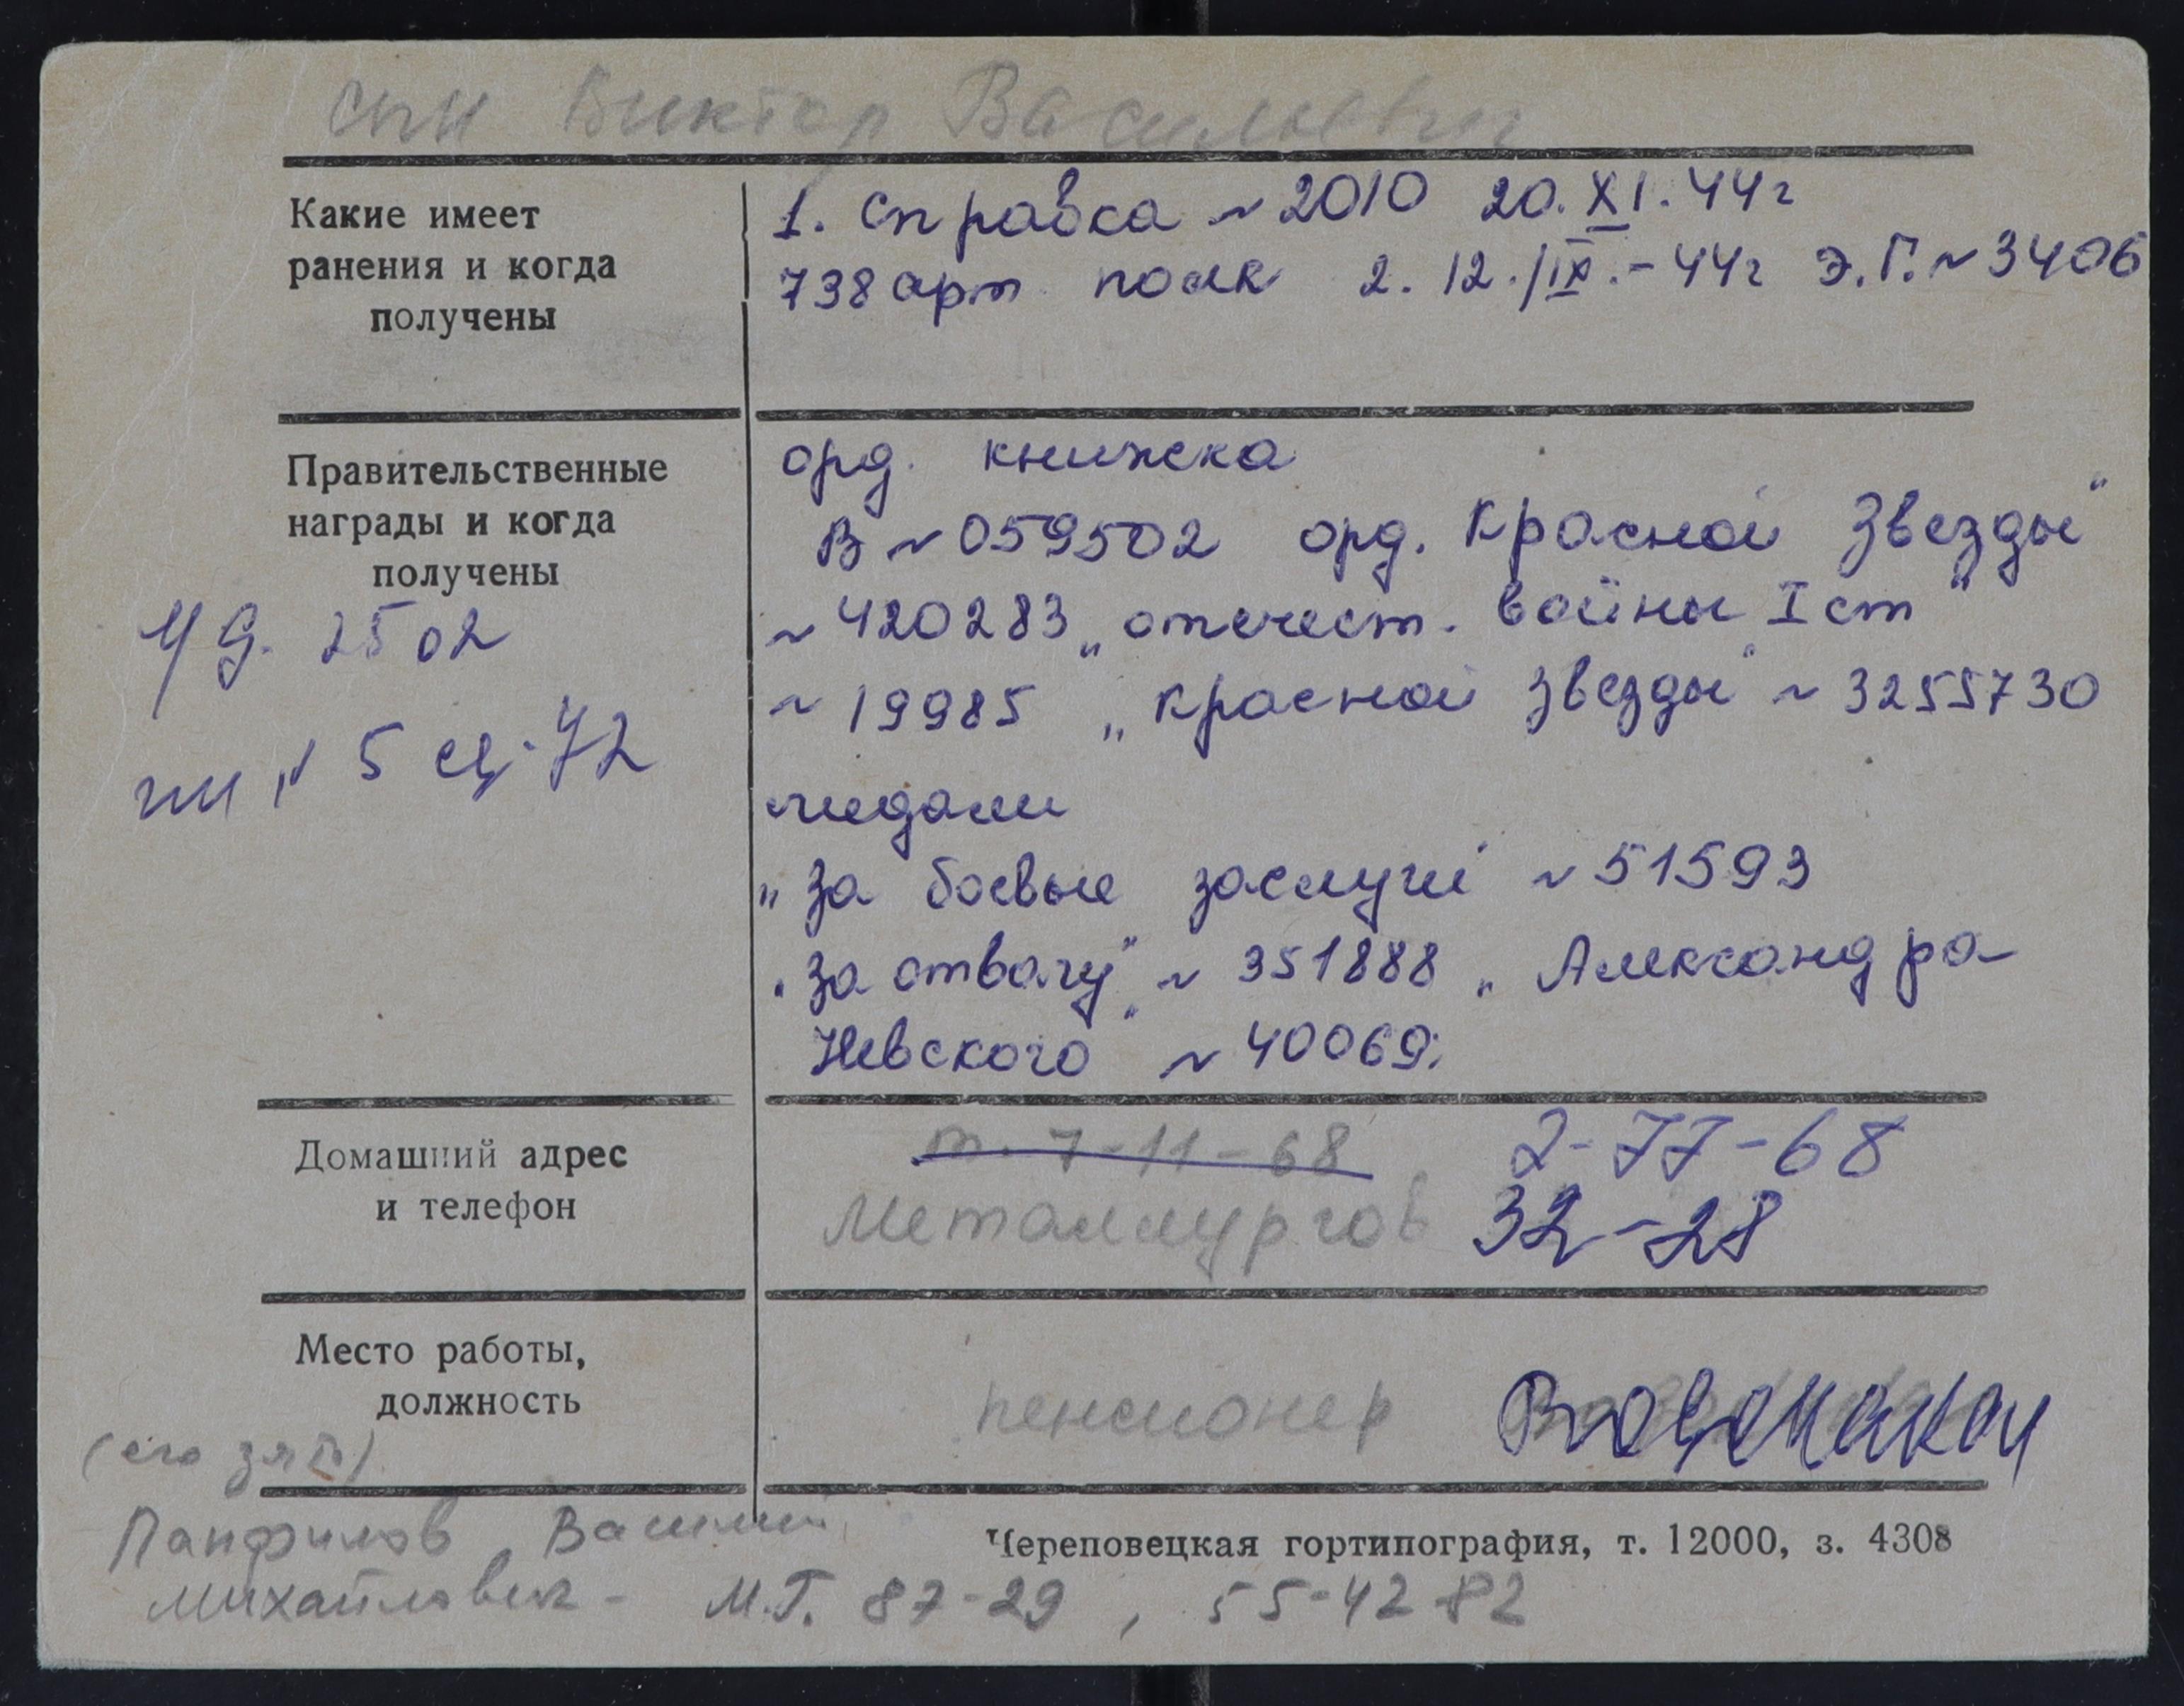 сын Виктор Васильевич
Какие имеет
ранения и когда
получены
1. Справка ~ 2010 20.XI.44г
738 арт полк 2. 12./IX.-44г Э.Г. ~ 3406
Правительственные
награды и когда
получены
орд. книжка
В ~ 059502 орд. Красной Звезды"
~ 420283 „отечест. войны I ст"
~ 19985 „Красной Звезды" ~ 3255730
медали
„За боевые заслуги ~ 51593
„За отвагу" ~ 351888 „Александра
Невского" ~ 40069.
УД. 2502
5 72
Домашний адрес
и телефон
т. 7-11-68 2-77-68
Металлургов 32-28
Место работы,
должность
пенсионер
(его зять)
Панфилов Василий
Михайлович - М.Г. 87-29, 55-42-82
Череповецкая гортипография, т. 12000, з. 4308